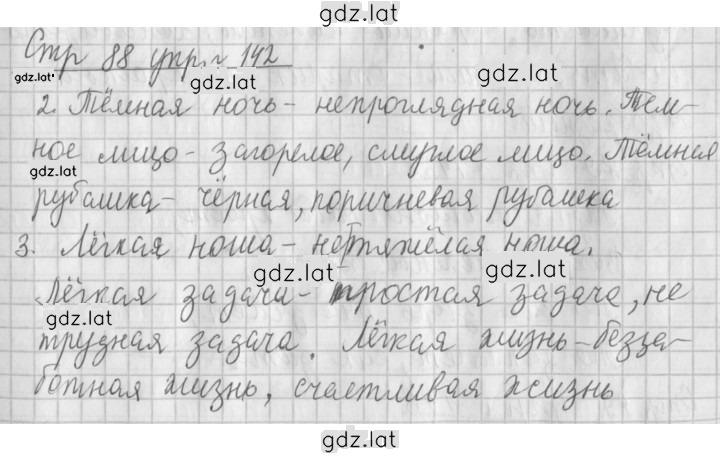 gdz.lat
Стр 88 упр. 142
gdz.lat gdz.lat gdz.lat
2. Тёмная ночь - непроглядная ночь. Тём-
ное лицо - загорелое, смуглое лицо. Тёмная
gdz.lat
рубашка - чёрная, поричневая рубашка
3. Лёгкая ноша - нетяжёлая ноша.
gdz.lat gdz.lat
Лёгкая задача - простая задача, не
gdz.lat
трудная задача. Лёгкая жизнь - безза-
ботная жизнь, счастливая жизнь
gdz.lat